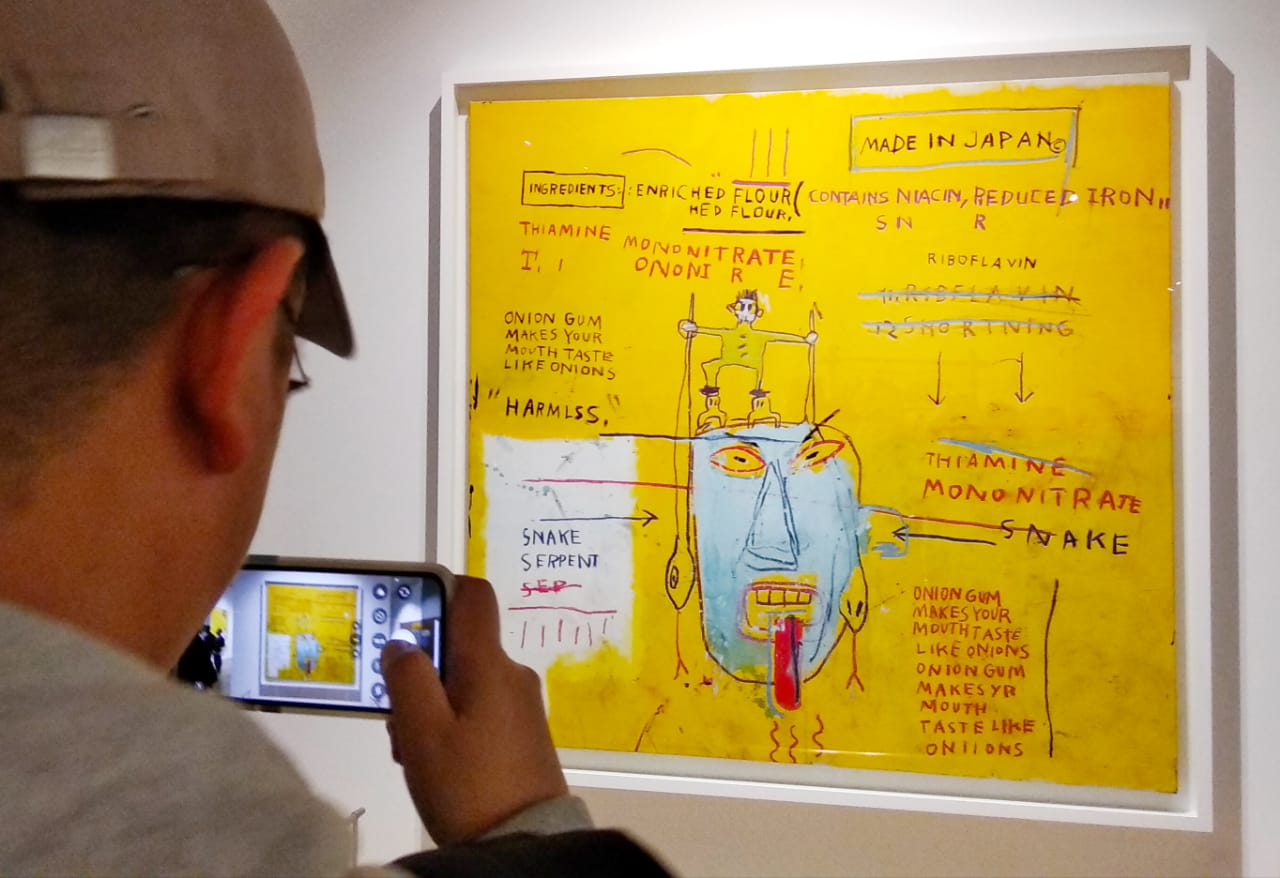 MADE IN JAPAN©
INGREDIENTS: : ENRICHED "FLOUR ( CONTAINS NIACIN, REDUCED IRON"
HED FLOUR,
S N R
THIAMINE MONONITRATE,
T. I ONONI R E,
RIBOFLAVIN
11. RIBFLAVIN
12 SHORTNING
ONION GUM
MAKES YOUR
MOUTH TASTE
LIKE ONIONS
"HARMLSS."
THIAMINE
MONONITRATE
SNAKE
SNAKE
SERPENT
SEP
ONION GUM
MAKES YOUR
MOUTH TASTE
LIKE ONIONS
ONION GUM
MAKES YR
MOUTH
TASTE LIKE
ONIIONS